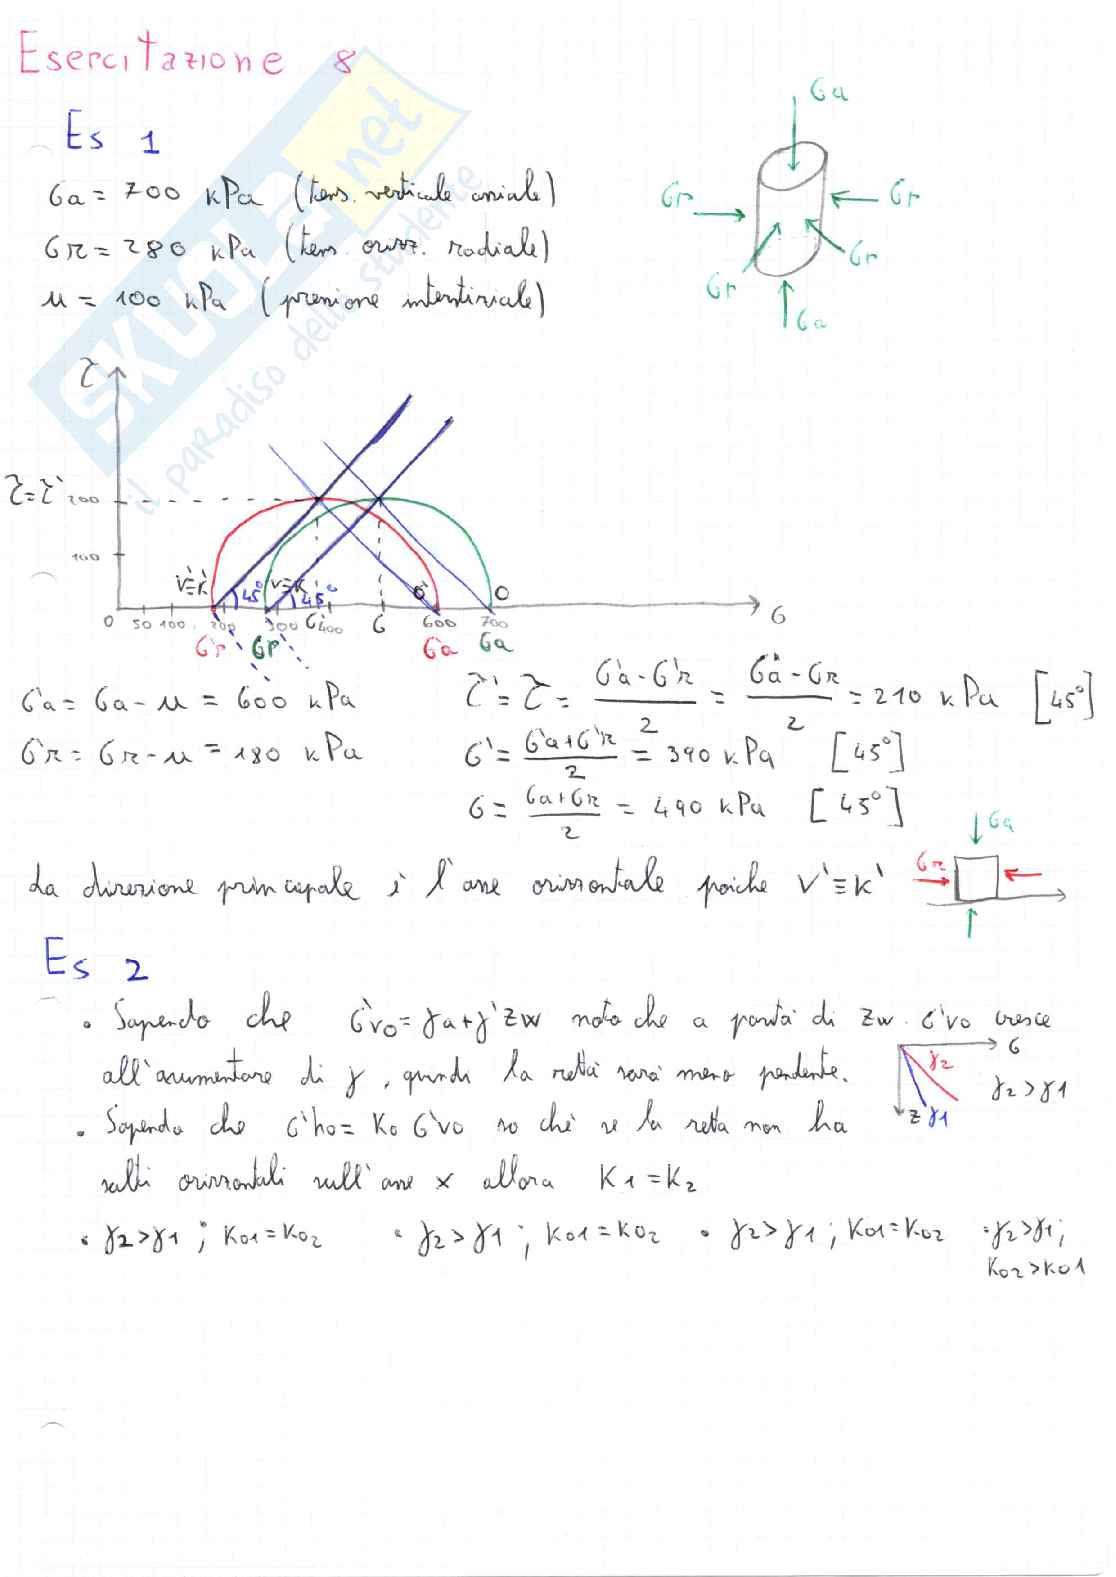 Esercitazione 8
Es 1
σa = 700 kPa (tens. verticale assiale)
σr = 280 kPa (tens. orizz. radiale)
u = 100 kPa (pressione interstiziale)
σa
σr
σr
σr
σr
σa
SKUOLA.net
il paradiso dello studente
τ
τ=τ' 200
100
V'≡K' 45° V≡K 45° O' O
0 50 100 200 300 σ' 400 σ 600 700 σ
σ'r σr σ'a σa
σ'a = σa - u = 600 kPa
σ'r = σr - u = 180 kPa
τ' = τ = (σ'a - σ'r)/2 = (σa - σr)/2 = 210 kPa [45°]
σ' = (σ'a + σ'r)/2 = 390 kPa [45°]
σ = (σa + σr)/2 = 490 kPa [45°]
La direzione principale è l'asse orizzontale poiche V'≡K'
σa
σr
Es 2
• Sapendo che σ'v0 = γa + γ'zw noto che a parità di zw σ'v0 cresce
all'aumentare di γ, quindi la retta sarà meno pendente.
σ
γ2
γ2 > γ1
z γ1
• Sapendo che σ'h0 = K0 σ'v0 so che se la retta non ha
salti orizzontali sull'asse x allora K1 = K2
• γ2 > γ1 ; K01 = K02 • γ2 > γ1 ; K01 = K02 • γ2 > γ1 ; K01 = K02 • γ2 > γ1 ;
K02 > K01